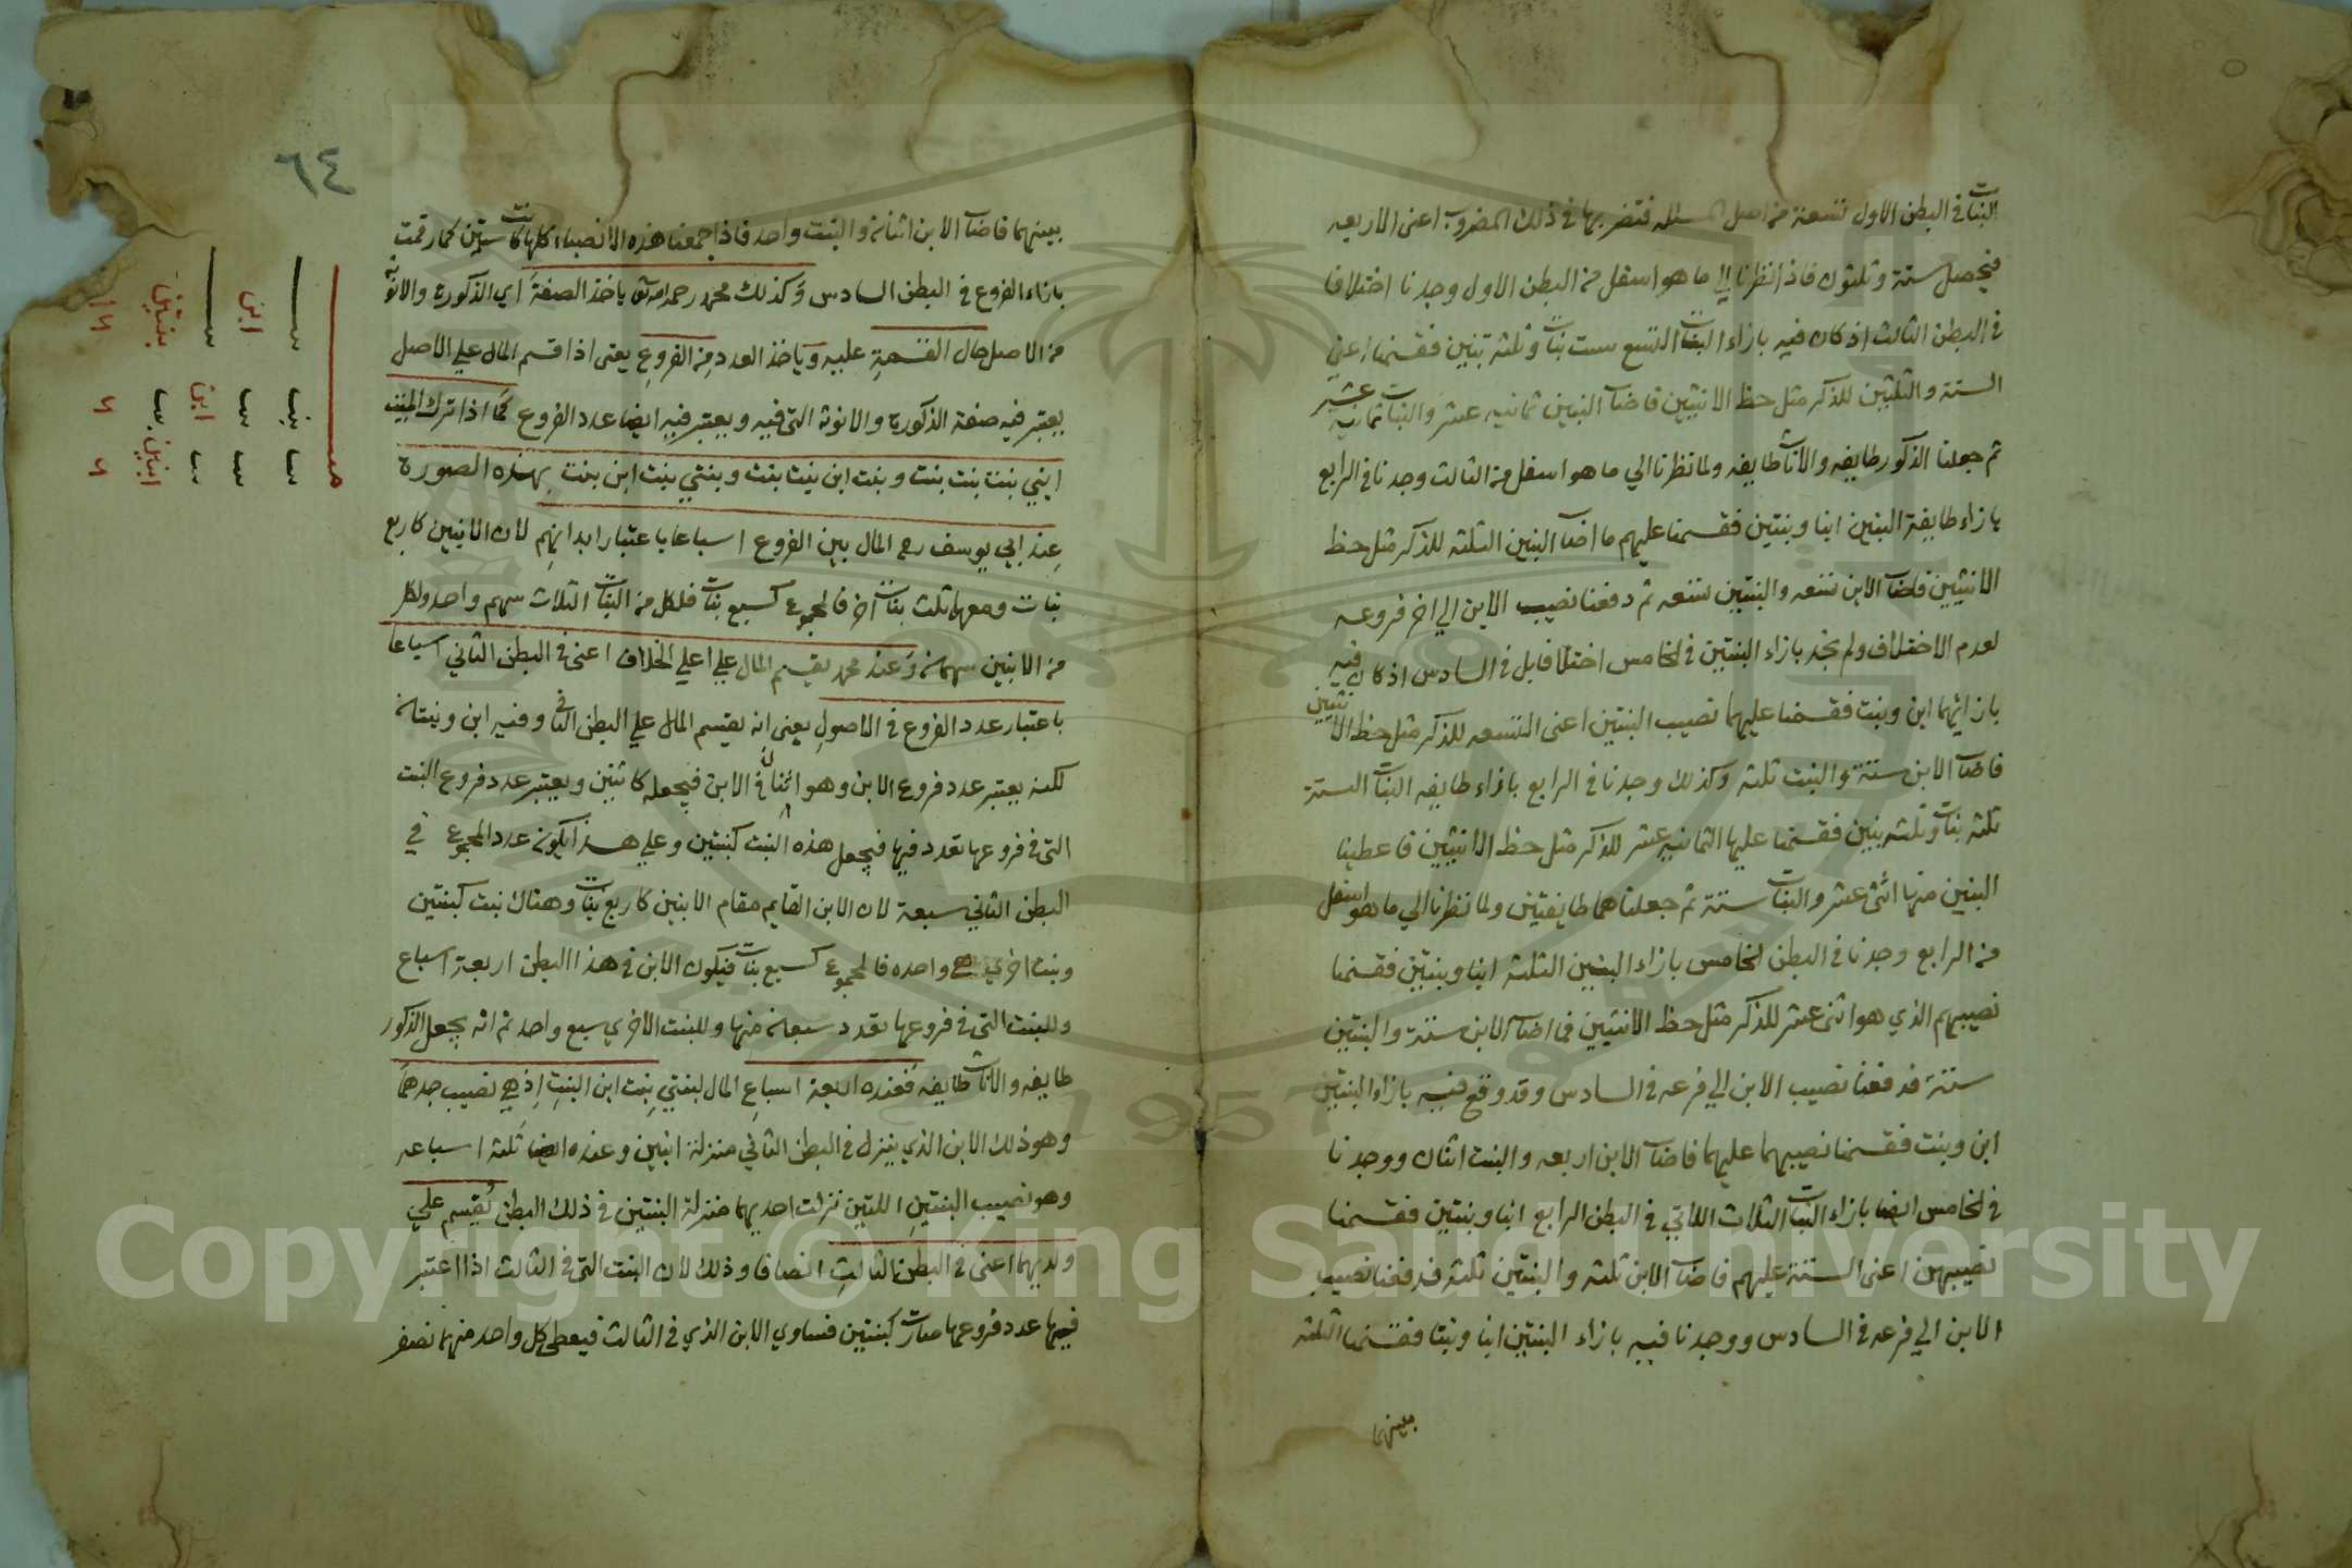 البنات في البطن الاول تسعة من اصل المسئلة فتضربها في ذلك المضروب اعنى الاربعه
فيحصل ستة وثلثون فاذا نظرنا الى ما هو اسفل من البطن الاول وجدنا اختلافا
في البطن الثالث اذ كان فيه بازاء البنات التسع ست بنات وثلثه بنين فقسمنا اعنى
الستة والثلثين للذكر مثل حظ الانثيين فاصاب البنين ثمانيه عشر والبنات ثمانية عشر
ثم جعلنا الذكور طايفه والاناث طايفه ولما نظرنا الي ما هو اسفل من الثالث وجدنا في الرابع
بازاء طايفة البنين ابنا وبنتين فقسمنا عليهم ما اصاب البنين الثلثه للذكر مثل حظ
الانثيين فاصاب الابن تسعه والبنتين تسعه ثم دفعنا نصيب الابن الي اخر فروعه
لعدم الاختلاف ولم نجد بازاء البنتين في الخامس اختلافا بل في السادس اذ كان فيه
بازائهما ابن وبنت فقسمنا عليهما نصيب البنتين اعنى التسعه للذكر مثل حظ الانثيين
فاصاب الابن ستة والبنت ثلثه وكذلك وجدنا في الرابع بازاء طايفه البنات الستة
ثلثه بنات وثلثه بنين فقسمنا عليها الثمانيه عشر للذكر مثل حظ الانثيين فاعطينا
البنين منها اثنى عشر والبنات ستة ثم جعلناهما طايفتين ولما نظرنا الي ما هو اسفل
من الرابع وجدنا في البطن الخامس بازاء البنين الثلثة ابنا وبنتين فقسمنا
نصيبهم الذي هو اثنى عشر للذكر مثل حظ الانثيين فاصاب الابن ستة والبنتين
ستة فدفعنا نصيب الابن الي فرعه في السادس وقد وقع فيه بازاء البنتين
ابن وبنت فقسمنا نصيبهما عليهما فاصاب الابن اربعه والبنت اثنان ووجدنا
في الخامس ايضا بازاء البنات الثلاث اللاتي في البطن الرابع ابنا وبنتين فقسمنا
نصيبهن اعنى الستة عليهم فاصاب الابن ثلثه والبنتين ثلثة فدفعنا نصيب
الابن الي فرعه في السادس ووجدنا فيه بازاء البنتين ابنا وبنتا فقسمنا الثلثه
بينهما
٦٤
بينهما فاصاب الابن اثنان والبنت واحد فاذا جمعنا هذه الانصباء كلها كانت ستين كما رقمت
بازاء الفروع في البطن السادس وكذلك محمد رحمه الله تع ياخذ الصفة اي الذكورة والانوثه
من الاصل حال القسمة عليه وياخذ العدد من الفروع يعنى اذا قسم المال علي الاصل
يعتبر فيه صفة الذكورة والانوثه التى فيه ويعتبر فيه ايضا عدد الفروع كما اذا ترك الميت
ابني بنت بنت بنت وبنت ابن بنت بنت وبنتي بنت ابن بنت بهذه الصورة
عند ابي يوسف رح المال بين الفروع اسباعا باعتبار ابدانهم لان الابنين كاربع
بنات ومعهما ثلث بنات اخر فالمجموع كسبع بنات فلكل من البنات الثلاث سهم واحد ولكل
من الابنين سهمان وعند محمد يقسم المال علي اعلي الخلاف اعنى في البطن الثاني اسباعا
باعتبار عدد الفروع في الاصول يعنى انه يقسم المال علي البطن الثاني وفيه ابن وبنتان
لكنه يعتبر عدد فروع الابن وهو اثنان في الابن فيجعله كابنين ويعتبر عدد فروع البنت
التى في فروعها تعدد فيها فيجعل هذه البنت كبنتين وعلي هذا يكون عدد المجموع في
البطن الثاني سبعة لان الابن القايم مقام الابنين كاربع بنات وهناك بنت كبنتين
وبنت اخري واحده فالمجموع كسبع بنات فيكون الابن في هذا البطن اربعة اسباع
وللبنت التى في فروعها تعدد سبعان منها وللبنت الاخري سبع واحد ثم انه يجعل الذكور
طايفه والاناث طايفه فعنده اربعة اسباع المال لبنتي بنت ابن البنت اذ هي نصيب جدهما
وهو ذلك الابن الذي ينزل في البطن الثاني منزلة ابنين وعنده ايضا ثلثه اسباعه
وهو نصيب البنتين اللتين نزلت احديهما منزلة البنتين في ذلك البطن يقسم علي
ولديهما اعنى في البطن الثالث انصافا وذلك لان البنت التى في الثالث اذا اعتبر
فيها عدد فروعها صارت كبنتين فساوي الابن الذي في الثالث فيعطى كل واحد منهما نصف
ابن
بنتين
بنت
ابن
ابنين
Copyright © King Saud University
1957